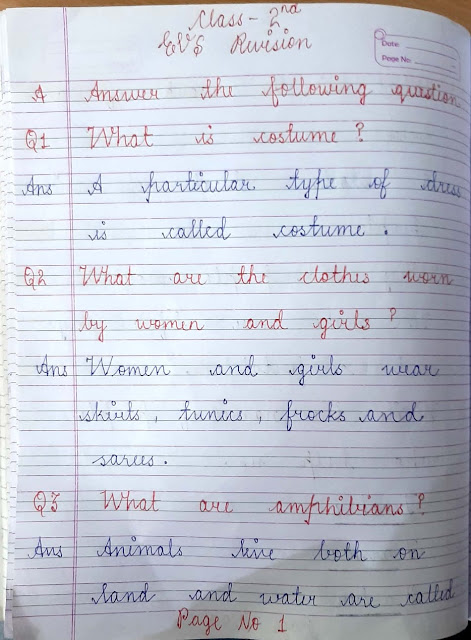 Class - 2nd
EVS Revision
Date:
Page No.
A Answer the following question
Q1 What is costume ?
Ans A particular type of dress
is called costume .
Q2 What are the clothes worn
by women and girls ?
Ans Women and girls wear
skirts , tunics , frocks and
sarees .
Q3 What are amphibians ?
Ans Animals live both on
land and water are called
Page No 1